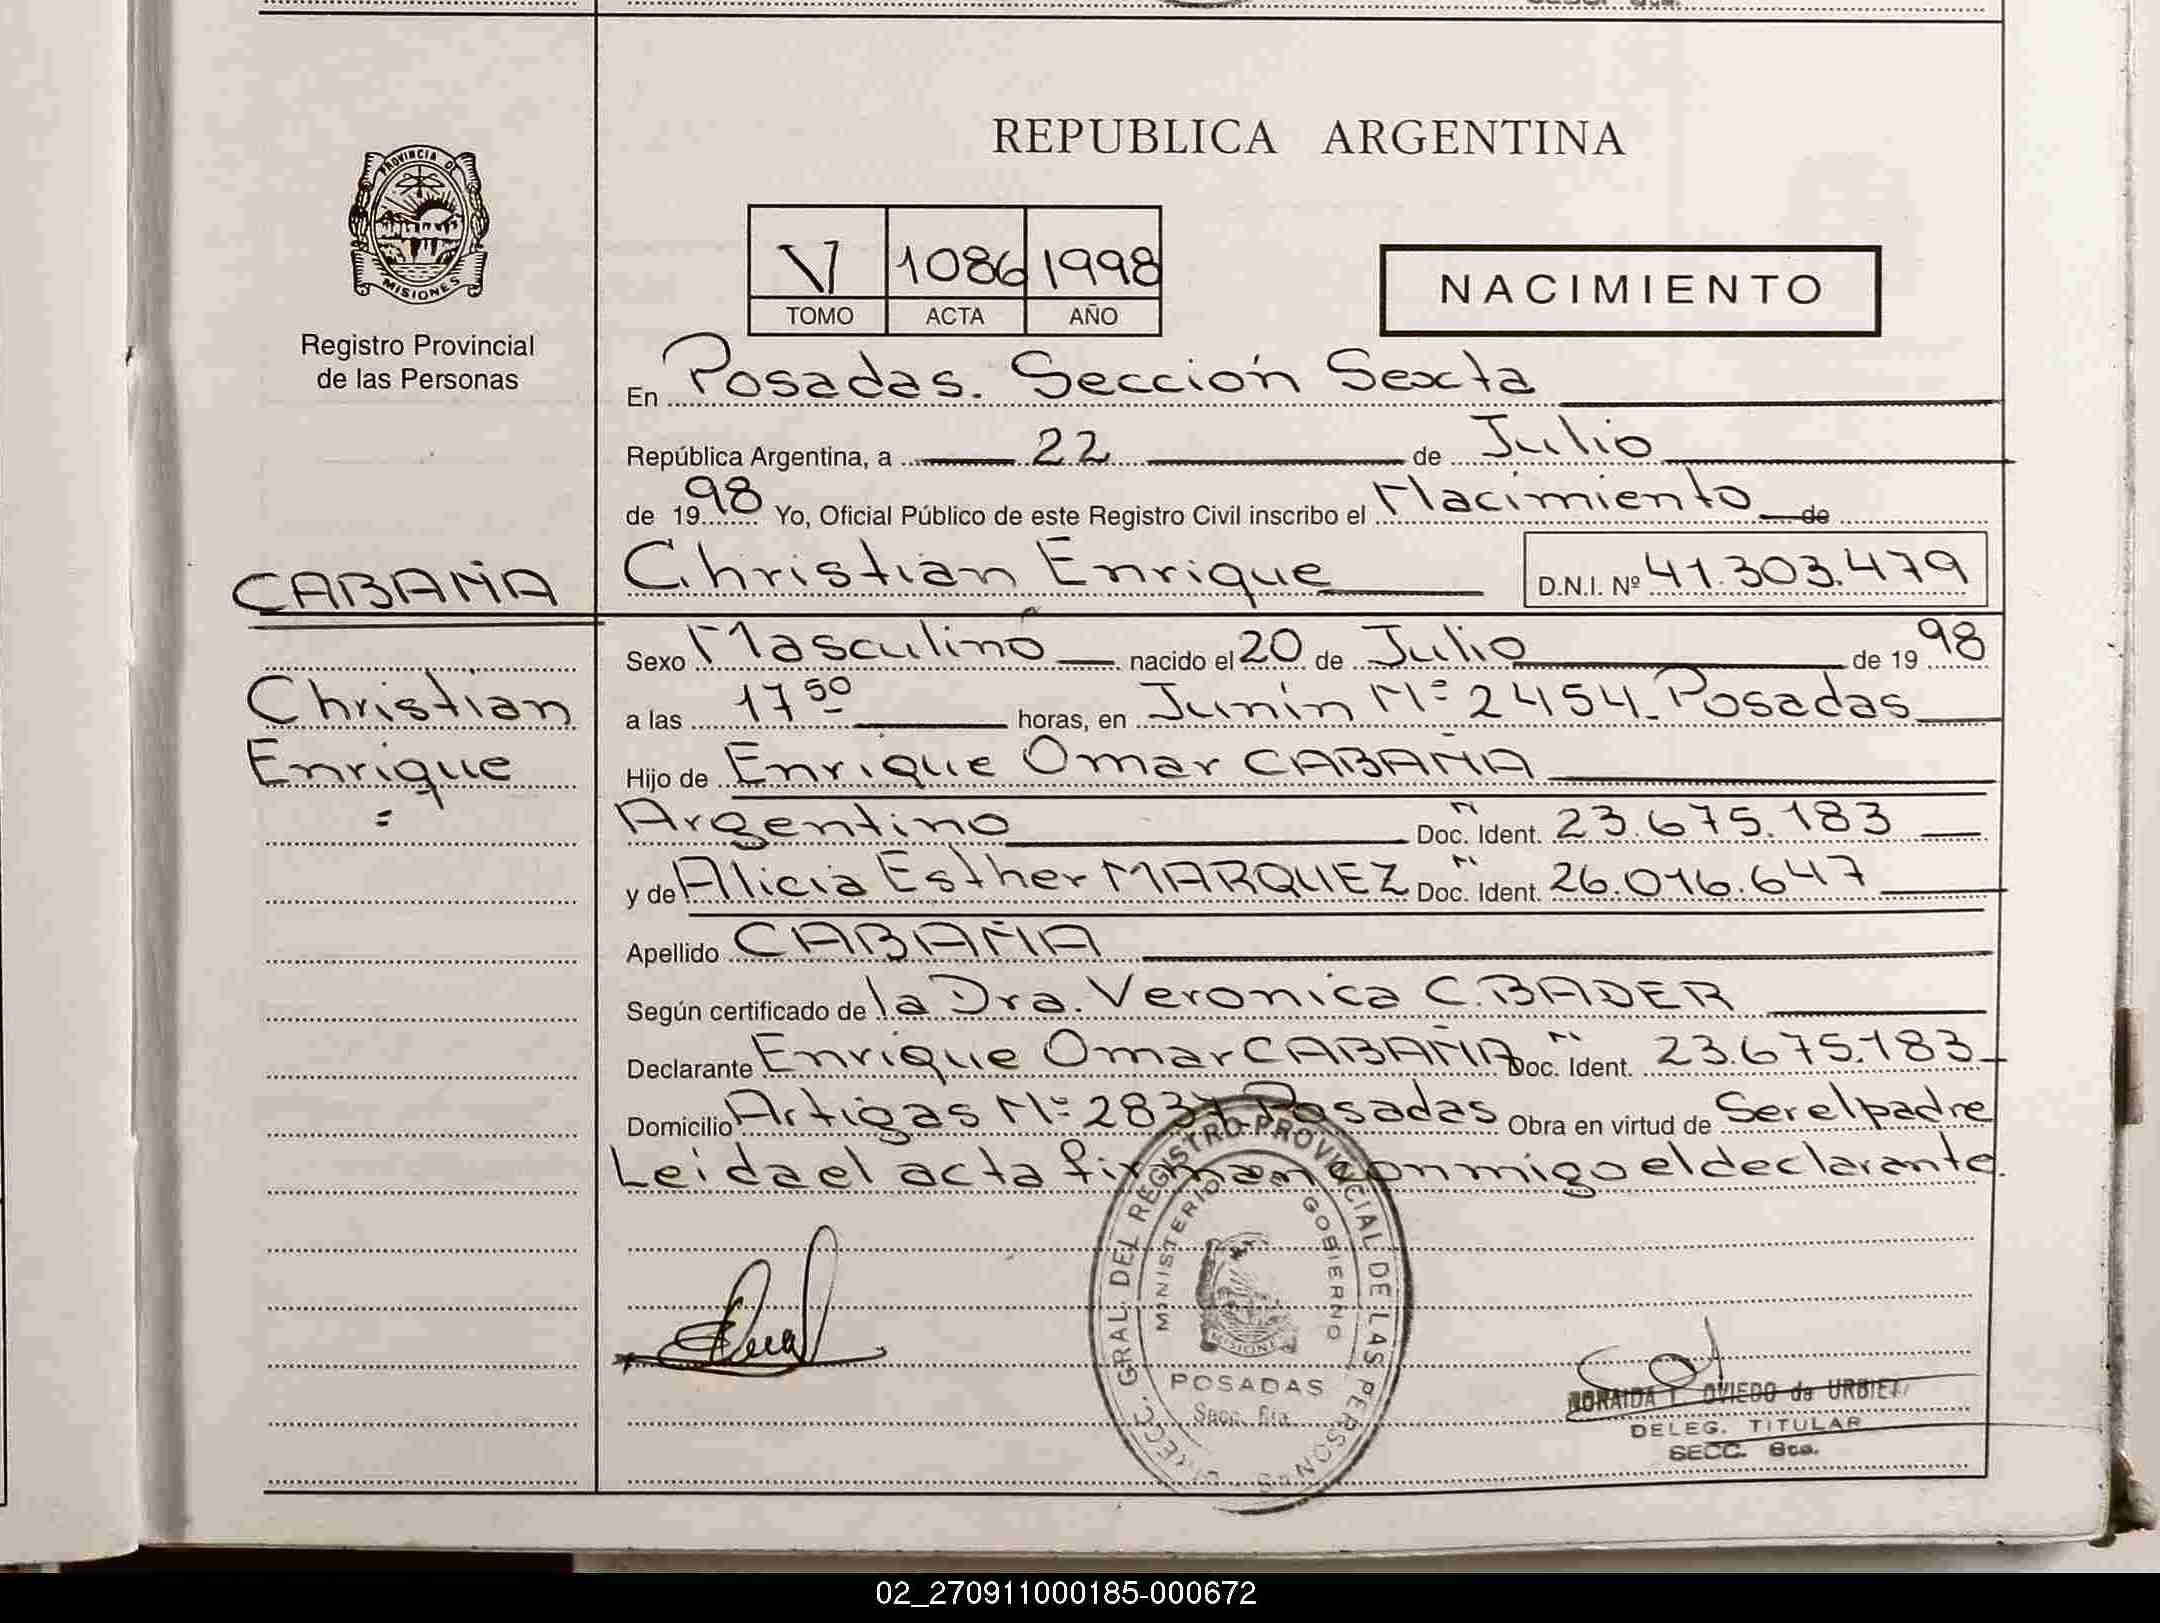 REPUBLICA ARGENTINA
PROVINCIA DE
MISIONES
Registro Provincial
de las Personas
V 1086 1998
TOMO ACTA AÑO
NACIMIENTO
En Posadas. Sección Sexta
República Argentina, a 22 de Julio
de 1998 Yo, Oficial Público de este Registro Civil inscribo el Nacimiento de
CABAÑA
Christian Enrique D.N.I. Nº 41.303.479
Sexo Masculino nacido el 20 de Julio de 1998
Christian
Enrique
a las 17 50 horas, en Junín Nº 2454 - Posadas
Hijo de Enrique Omar CABAÑA
Argentino Doc. Ident. 23.675.183
y de Alicia Esther MARQUEZ Doc. Ident. 26.016.647
Apellido CABAÑA
Según certificado de la Dra. Veronica C. BADER
Declarante Enrique Omar CABAÑA Doc. Ident. 23.675.183
Domicilio Artigas Nº 2837 Posadas Obra en virtud de Ser el padre
Leida el acta firman conmigo el declarante.
DIRECC. GRAL. DEL REGISTRO PROVINCIAL DE LAS PERSONAS
MINISTERIO GOBIERNO
POSADAS
Secc. 6ta.
OVIEDO de URBIETA
DELEG. TITULAR
SECC. 6ta.
02_270911000185-000672